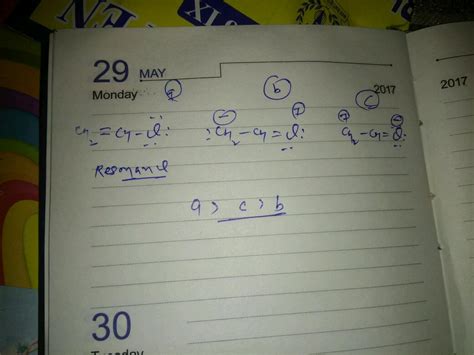 29 MAY
Monday
2017
2017
a b c
CH₂ = CH - Cl : :CH₂ - CH = Cl : CH₂ - CH = Cl :
Resonance
a > c > b
30
Tuesday